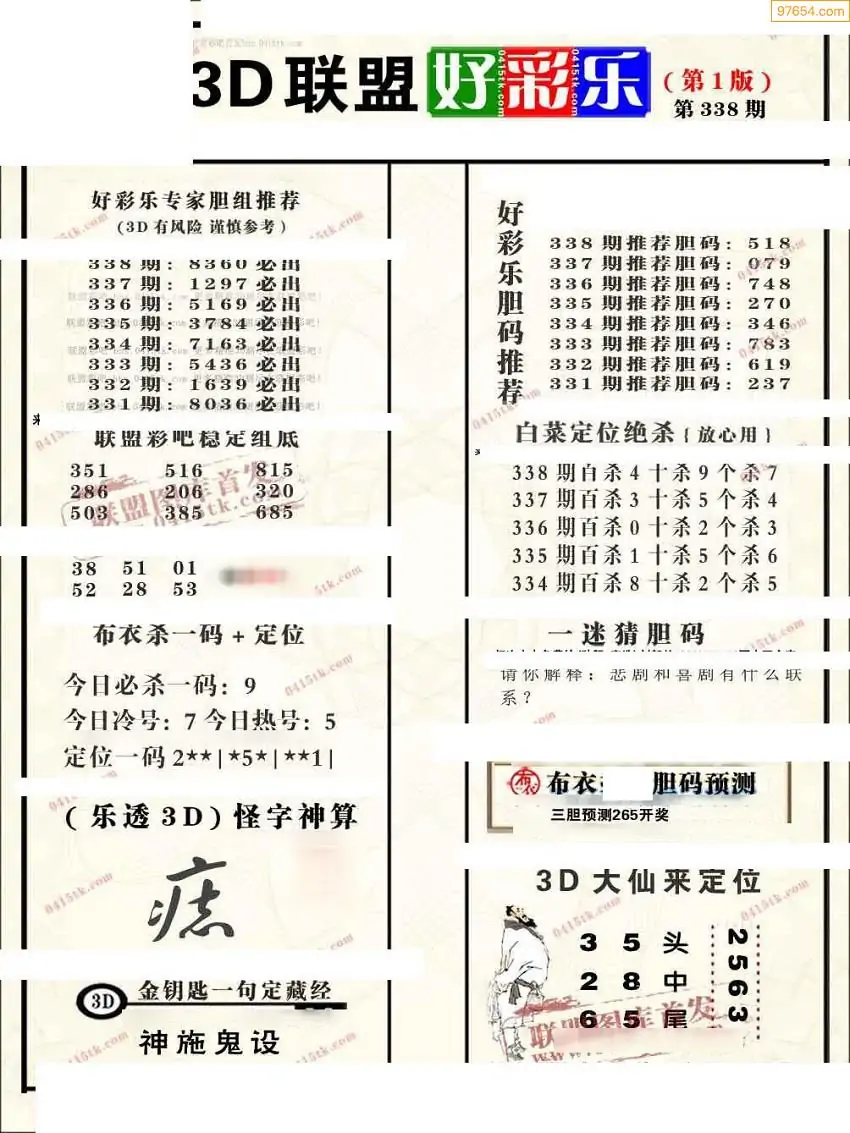 97654.com
3D联盟 好彩乐 (第1版)
0415tk.com 0415tk.com
第338期
好彩乐专家胆组推荐
(3D有风险 谨慎参考)
338期: 8360必出
337期: 1297必出
336期: 5169必出
335期: 3784必出
334期: 7163必出
333期: 5436必出
332期: 1639必出
331期: 8036必出
联盟彩吧稳定组底
351 516 815
286 206 320
503 385 685
联盟图库首发
38 51 01
52 28 53
布衣杀一码+定位
今日必杀一码: 9
今日冷号: 7 今日热号: 5
定位一码 2**|*5*|**1|
(乐透3D)怪字神算
痣
3D 金钥匙一句定藏经
神施鬼设
好彩乐胆码推荐
338期推荐胆码: 518
337期推荐胆码: 079
336期推荐胆码: 748
335期推荐胆码: 270
334期推荐胆码: 346
333期推荐胆码: 783
332期推荐胆码: 619
331期推荐胆码: 237
白菜定位绝杀{放心用}
338期百杀4十杀9个杀7
337期百杀3十杀5个杀4
336期百杀0十杀2个杀3
335期百杀1十杀5个杀6
334期百杀8十杀2个杀5
一迷猜胆码
请你解释: 悲剧和喜剧有什么联
系?
布衣 胆码预测
三胆预测265开奖
3D大仙来定位
3 5 头
2 8 中
6 5 尾
2563
联盟图库首发
0415tk.com